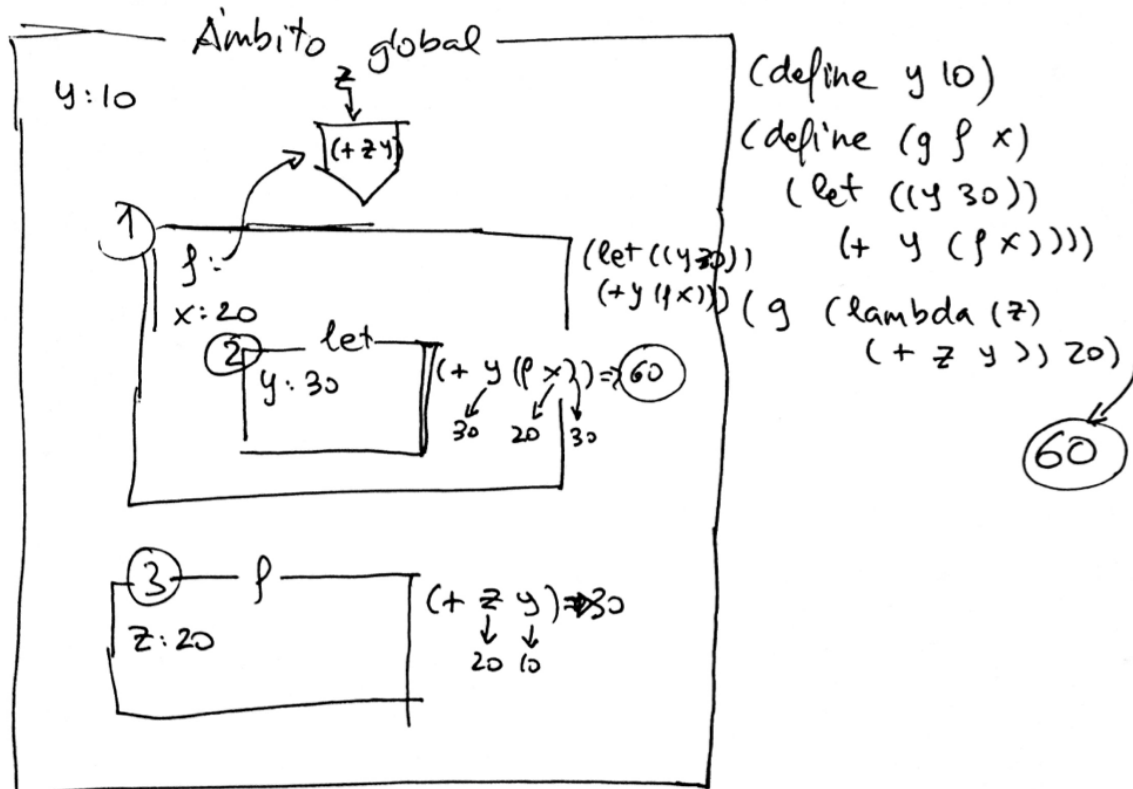 Ámbito global
y:10
z
(+ z y)
1
f:
x:20
(let ((y 30))
(+ y (f x)))
2 let
y:30
(+ y (f x)) ⇒ 60
30 20 30
3 f
z:20
(+ z y) ⇒ 30
20 10
(define y 10)
(define (g f x)
(let ((y 30))
(+ y (f x))))
(g (lambda (z)
(+ z y)) 20)
60